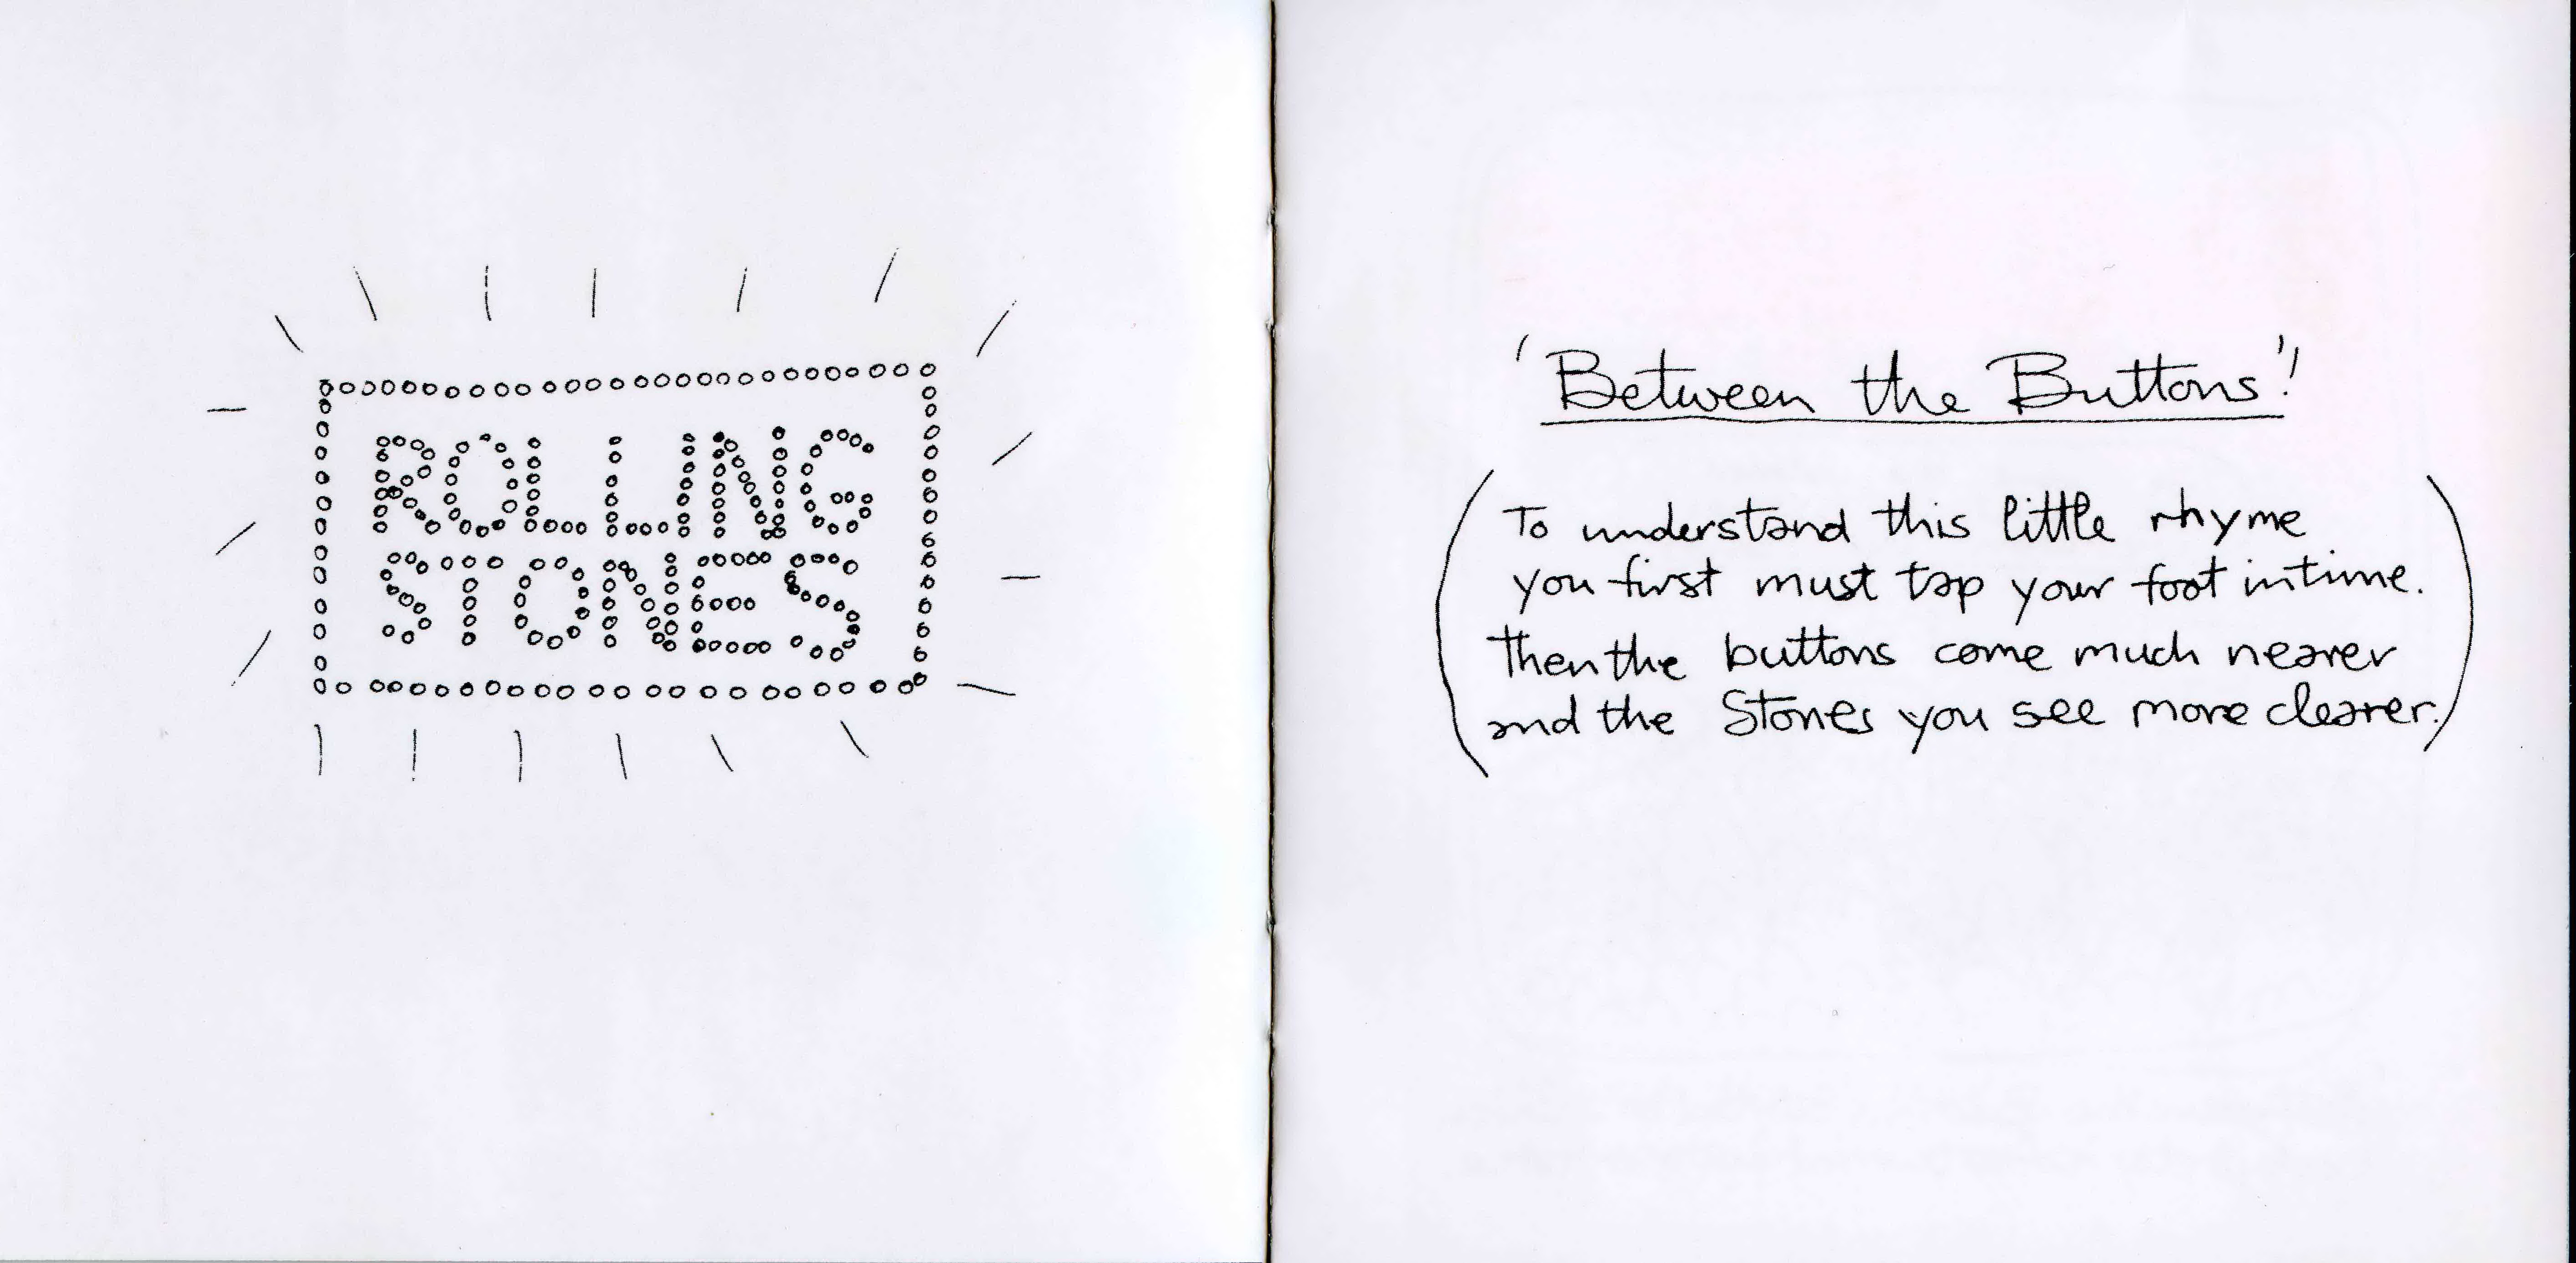 ROLLING
STONES
'Between the Buttons'!
(To understand this little rhyme
you first must tap your foot in time.
Then the buttons come much nearer
and the Stones you see more clearer.)